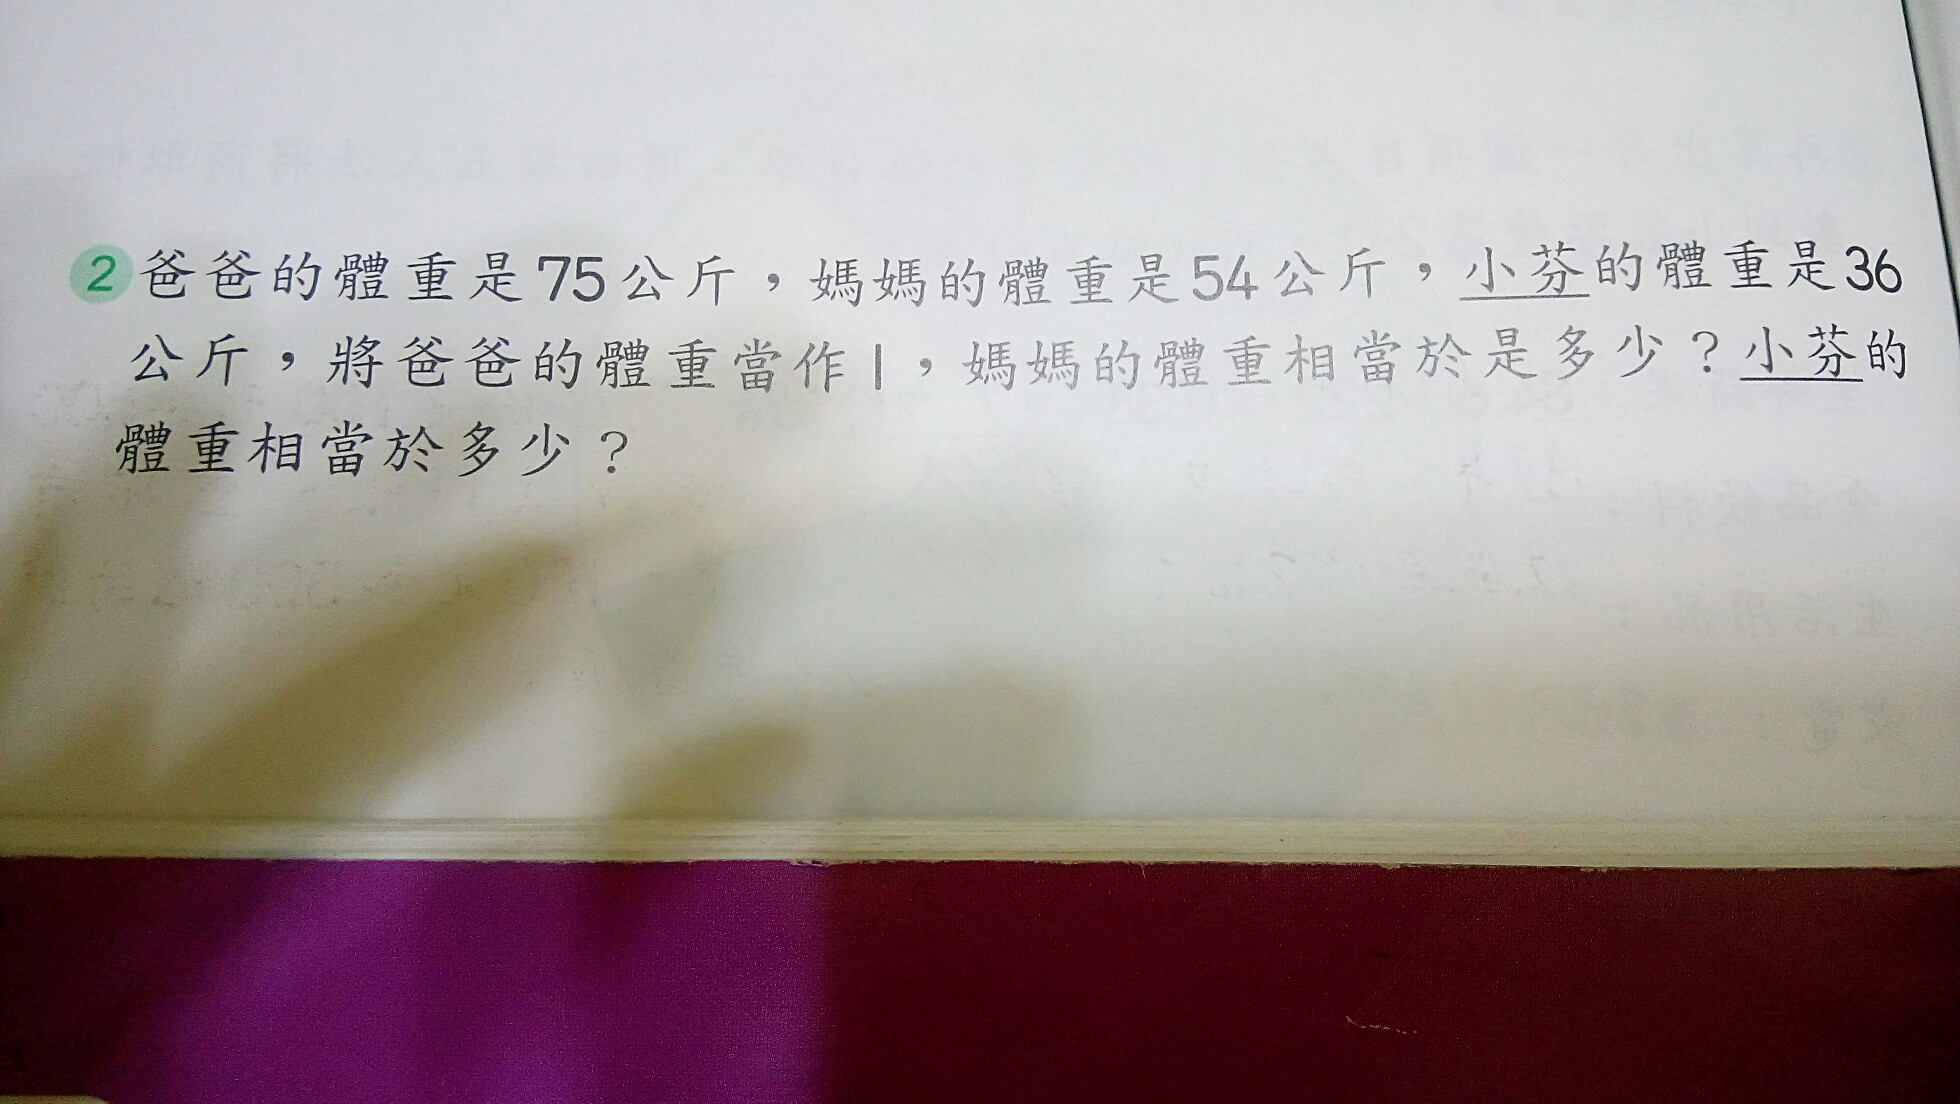 2 爸爸的體重是75公斤，媽媽的體重是54公斤，小芬的體重是36
公斤，將爸爸的體重當作1，媽媽的體重相當於是多少？小芬的
體重相當於多少？